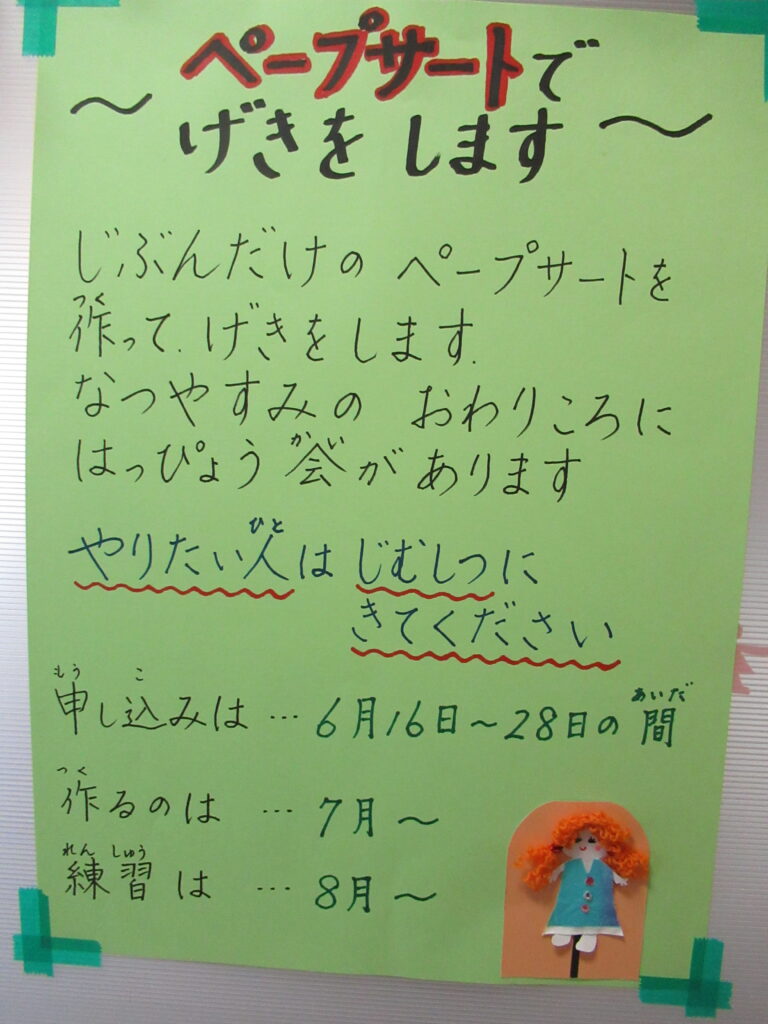 ペープサートで
～げきを します～
じぶんだけの ペープサートを
つく
作って、げきをします。
なつやすみの おわりころに
かい
はっぴょう会が あります
ひと
やりたい人は じむしつに
きてください
もう こ あいだ
申し込みは … 6月16日～28日の間
つく
作るのは … 7月～
れん しゅう
練習は … 8月～